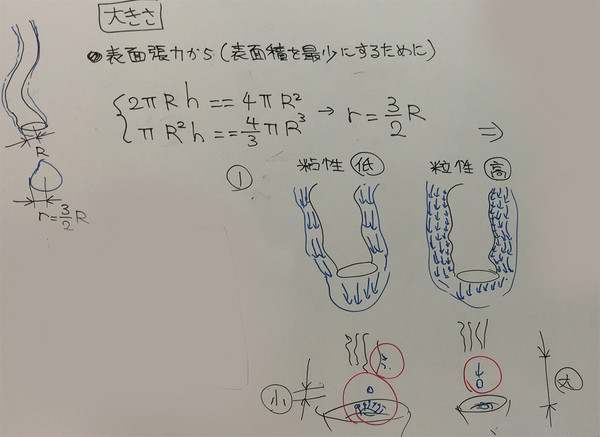 大きさ
●表面張力から(表面積を最少にするために)
2πRh == 4πR²
πR²h == 4/3 πR³
→ r = 3/2 R
⇒
R
r = 3/2 R
①
粘性 低
粒性 高
小
大